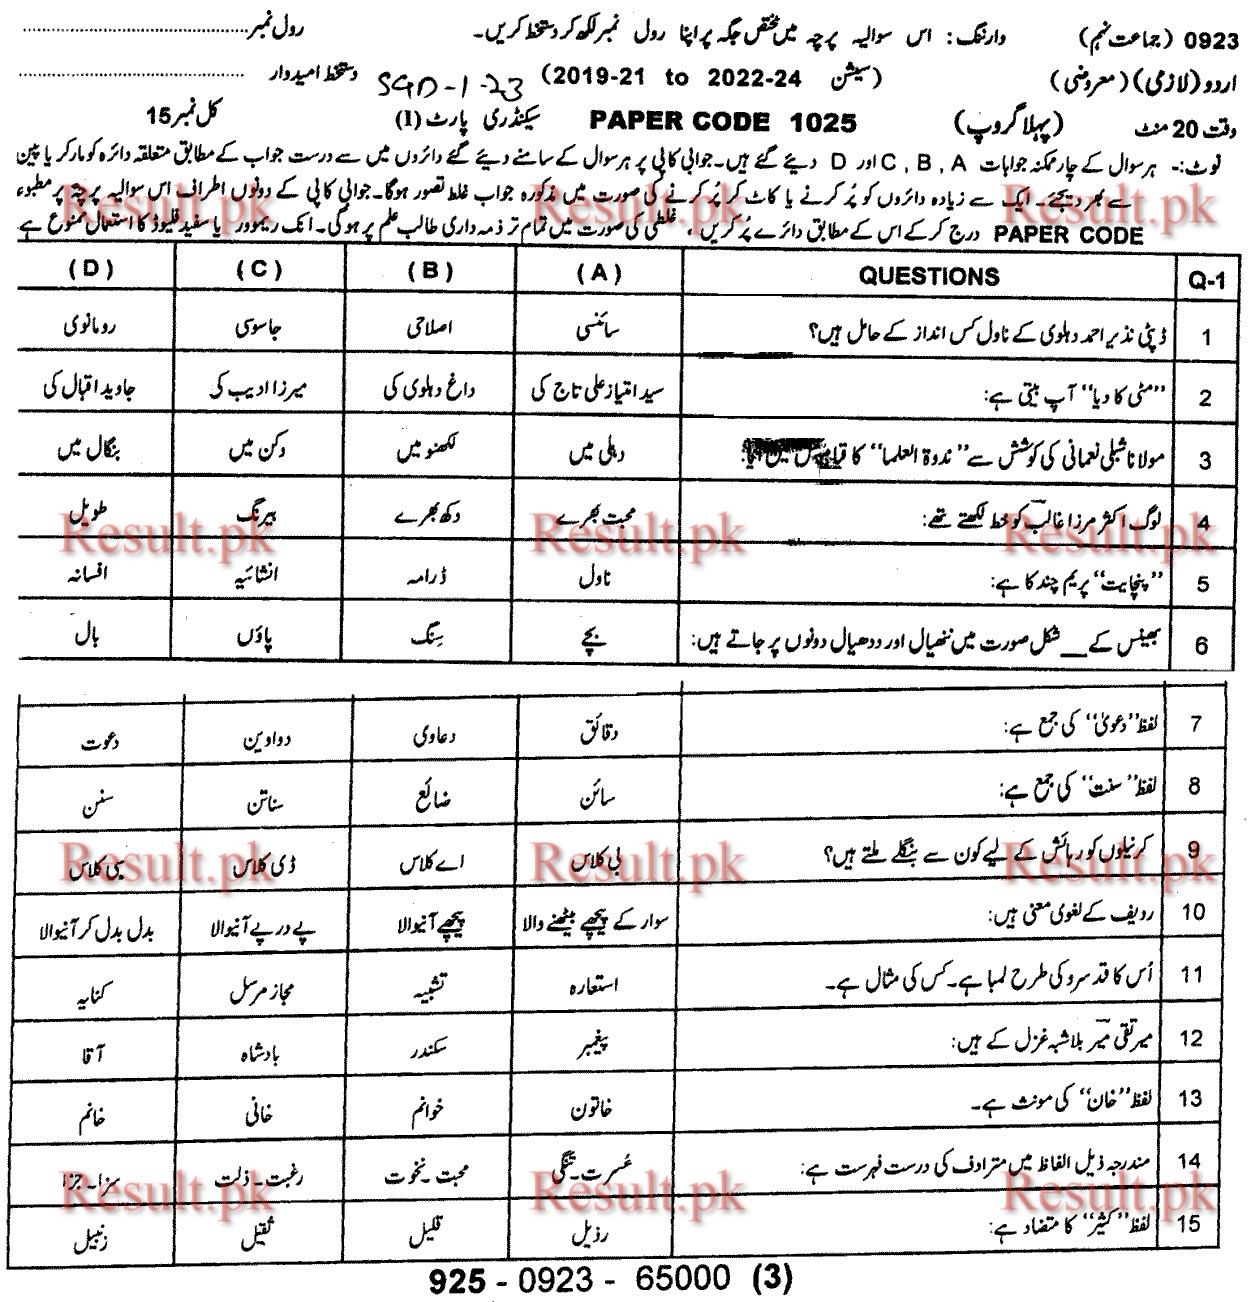 0923 (جماعت نہم) وارننگ: اس سوالیہ پرچہ میں مختص جگہ پر اپنا رول نمبر لکھ کر دستخط کریں۔ رول نمبر
اردو (لازمی) (معروضی) (سیشن 2019-21 to 2022-24) SGD-1-23 دستخط امیدوار
وقت 20 منٹ (پہلا گروپ) PAPER CODE 1025 سیکنڈری پارٹ (I) کل نمبر 15
نوٹ:- ہر سوال کے چار ممکنہ جوابات A, B, C اور D دیئے گئے ہیں۔ جوابی کاپی پر ہر سوال کے سامنے دیئے گئے دائروں میں سے درست جواب کے مطابق متعلقہ دائرہ کو مارکر یا پین
سے بھر دیجئے۔ ایک سے زیادہ دائروں کو پُر کرنے یا کاٹ کر پُر کرنے کی صورت میں مذکورہ جواب غلط تصور ہوگا۔ جوابی کاپی کے دونوں اطراف اس سوالیہ پرچہ پر مطبوعہ
PAPER CODE درج کرکے اس کے مطابق دائرے پُر کریں، غلطی کی صورت میں تمام تر ذمہ داری طالب علم پر ہوگی۔ انک ریموور یا سفید فلیوڈ کا استعمال ممنوع ہے
Q-1 QUESTIONS (A) (B) (C) (D)
1 ڈپٹی نذیر احمد دہلوی کے ناول کس انداز کے حامل ہیں؟ سائنسی اصلاحی جاسوسی رومانوی
2 "مٹی کا دیا" آپ بیتی ہے: سید امتیاز علی تاج کی داغ دہلوی کی میرزا ادیب کی جاوید اقبال کی
3 مولانا شبلی نعمانی کی کوشش سے "ندوۃ العلما" کا دہلی میں لکھنو میں دکن میں بنگال میں
4 لوگ اکثر مرزا غالب کو خط لکھتے تھے: محبت بھرے دکھ بھرے بیرنگ طویل
5 "پنچایت" پریم چند کا ہے: ناول ڈرامہ انشائیہ افسانہ
6 بھینس کے ___ شکل صورت میں ننھیال اور ددھیال دونوں پر جاتے ہیں: بچے سِنگ پاؤں بال
7 لفظ "دعویٰ" کی جمع ہے: دقائق دعاوی دواوین دعوت
8 لفظ "سنت" کی جمع ہے: سائن ضائع سناتن سنن
9 کرنیلوں کو رہائش کے لیے کون سے بنگلے ملتے ہیں؟ بی کلاس اے کلاس ڈی کلاس سی کلاس
10 ردیف کے لغوی معنی ہیں: سوار کے پیچھے بیٹھنے والا پیچھے آنیوالا پے در پے آنیوالا بدل بدل کر آنیوالا
11 اُس کا قد سرو کی طرح لمبا ہے۔ کس کی مثال ہے۔ استعارہ تشبیہ مجاز مرسل کنایہ
12 میر تقی میر بلاشبہ غزل کے ہیں: پیغمبر سکندر بادشاہ آقا
13 لفظ "خان" کی مونث ہے۔ خاتون خوانم خانی خانم
14 مندرجہ ذیل الفاظ میں مترادف کی درست فہرست ہے: عُسرت۔تنگی محبت۔نخوت رغبت۔ذلت سزا۔جزا
15 لفظ "کثیر" کا متضاد ہے: رذیل قلیل ثقیل زنبیل
925 - 0923 - 65000 (3)
Result.pk Result.pk Result.pk
Result.pk Result.pk Result.pk
Result.pk Result.pk Result.pk
Result.pk Result.pk Result.pk